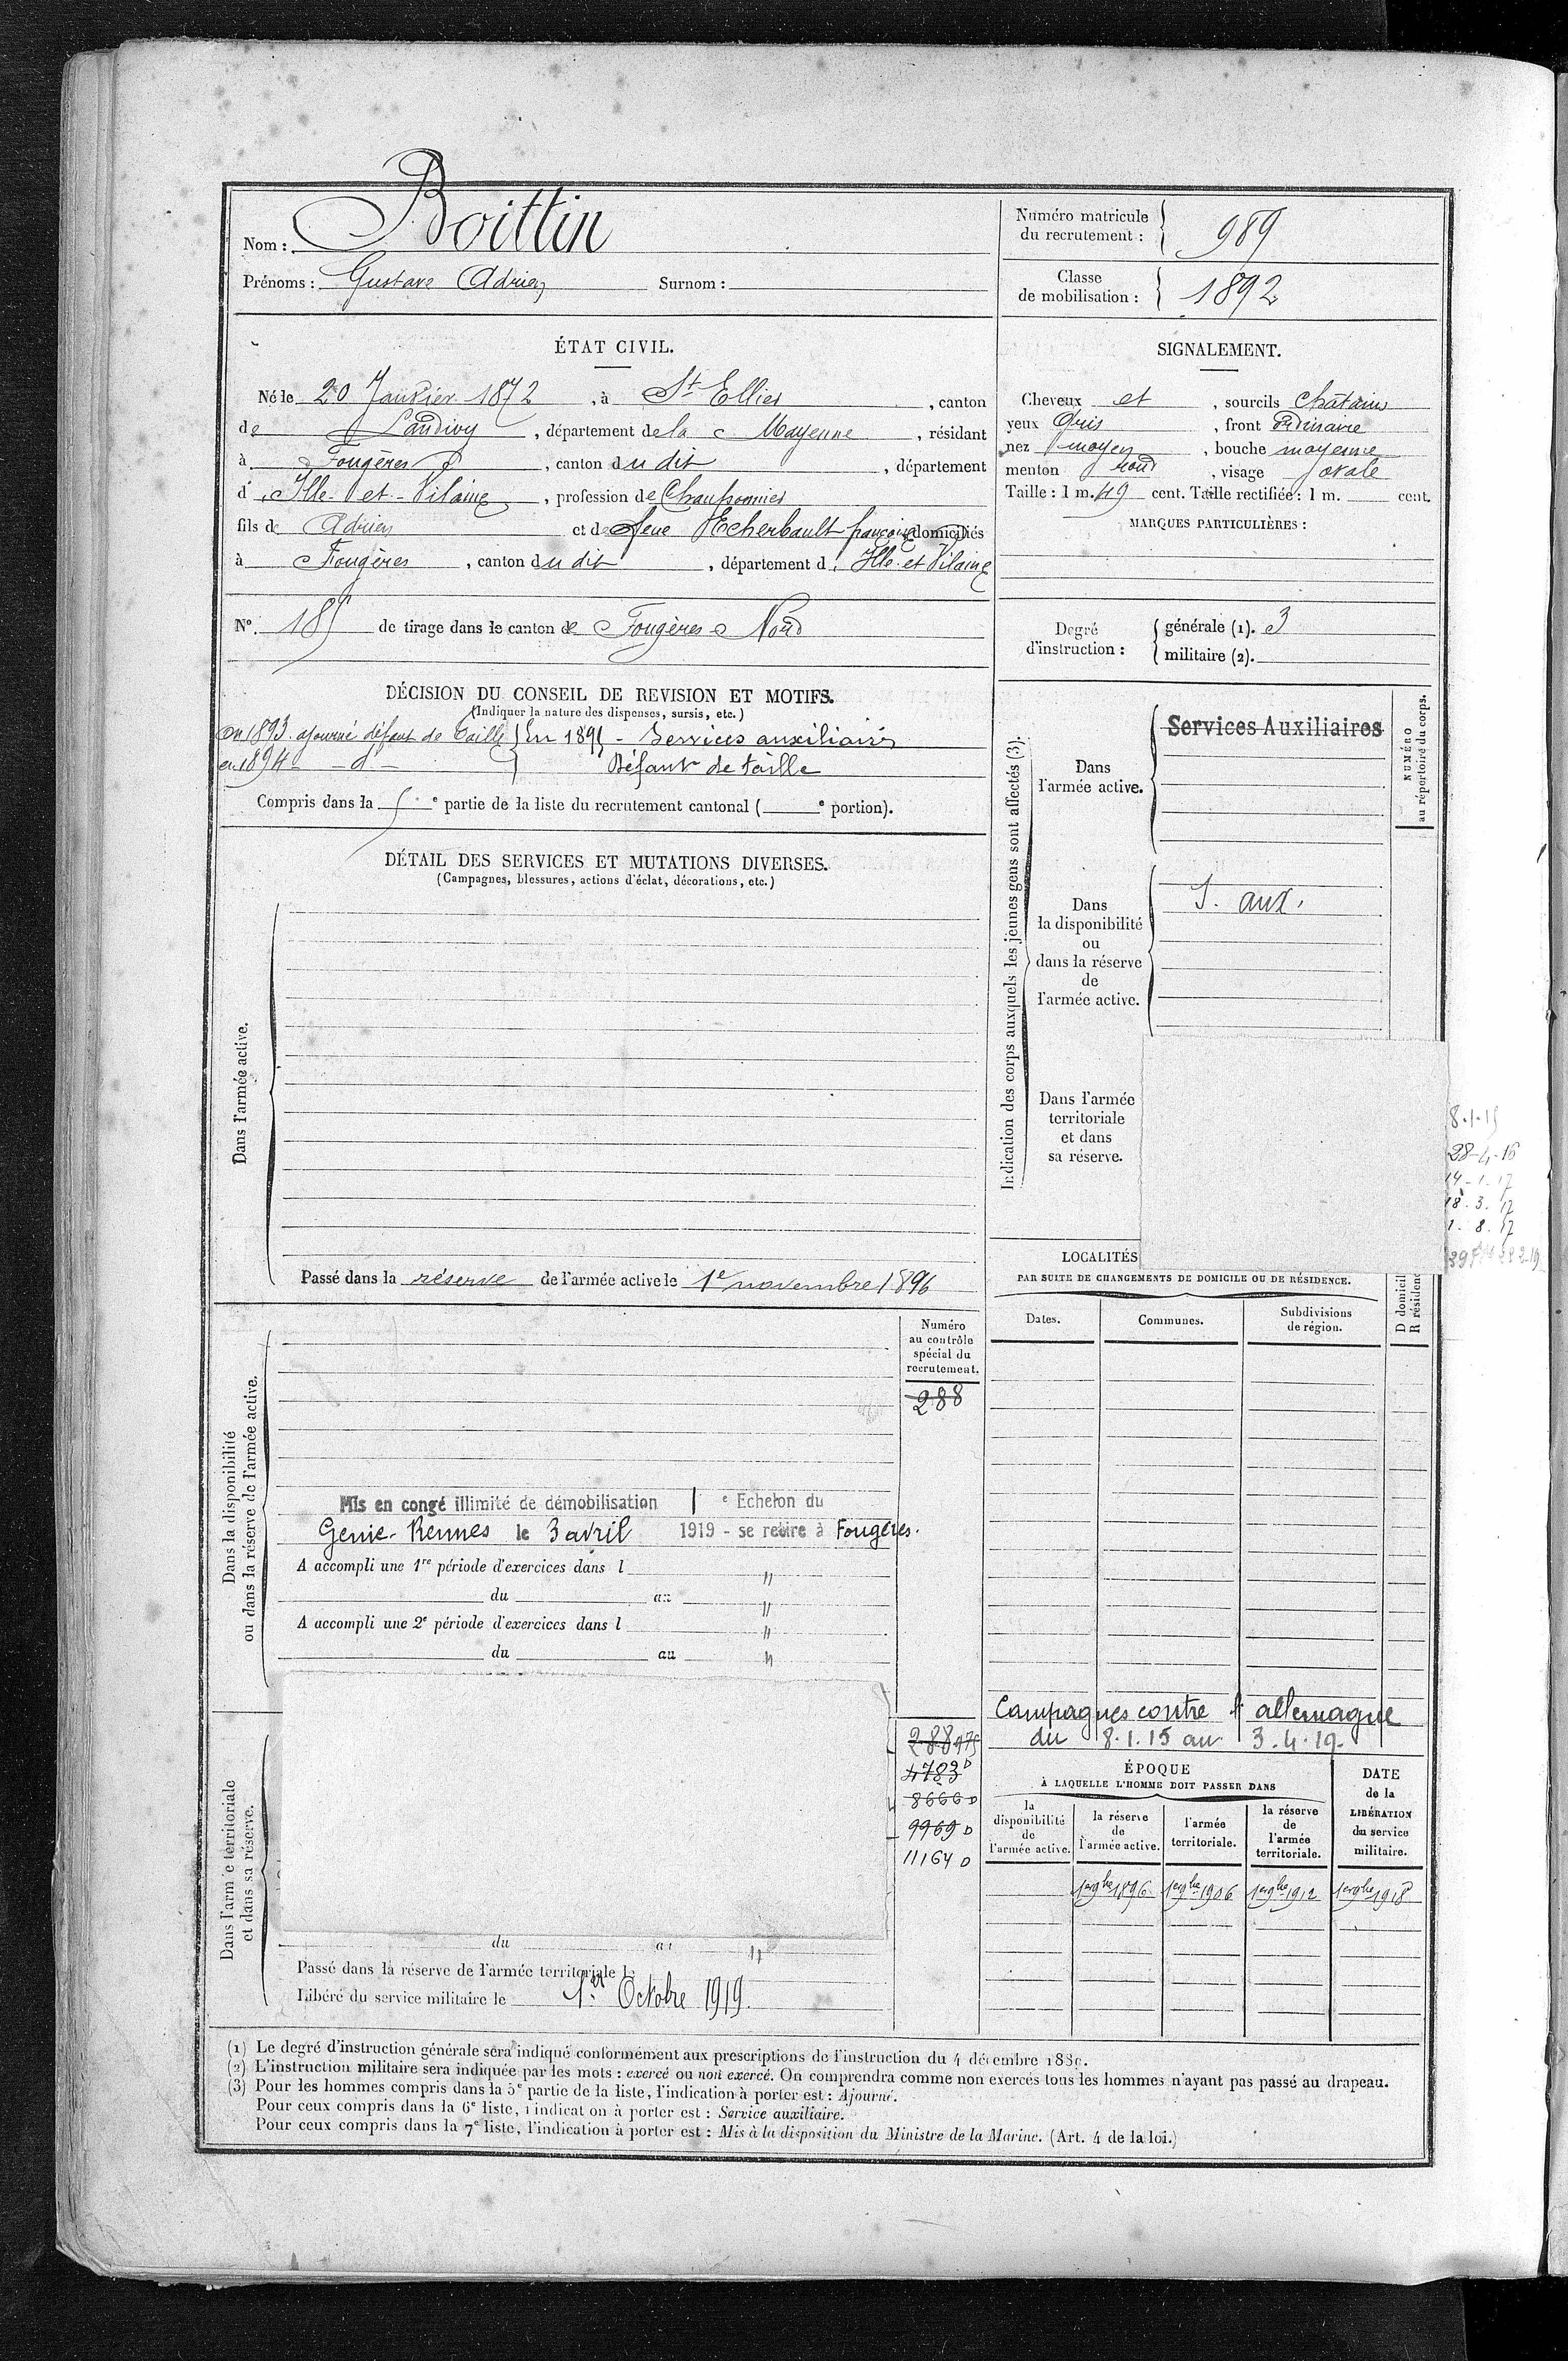 Boittin
Nom :
Prénoms : Gustave Adrien Surnom :
Numéro matricule du recrutement : 989
Classe de mobilisation : 1892
ÉTAT CIVIL.
Né le 20 Janvier 1872, à St Ellier, canton
de Landivy, département de la Mayenne, résidant
à Fougères, canton du dit, département
d'Ille-et-Vilaine, profession de Chaussonnier
fils de Adrien et de feue Hcherbault françoise domiciliés
à Fougères, canton du dit, département d'Ille-et-Vilaine
N° 185 de tirage dans le canton de Fougères Nord
SIGNALEMENT.
Cheveux et, sourcils chatains
yeux Gris, front Ordinaire
nez moyen, bouche moyenne
menton rond, visage ovale
Taille : 1 m. 49 cent. Taille rectifiée : 1 m. cent.
MARQUES PARTICULIÈRES :
Degré d'instruction : générale (1). 3
militaire (2).
DÉCISION DU CONSEIL DE REVISION ET MOTIFS.
(Indiquer la nature des dispenses, sursis, etc.)
en 1893 ajourné défaut de taille } En 1895 - Services auxiliaires
en 1894 - d° - } Défaut de taille
Compris dans la 5e partie de la liste du recrutement cantonal ( e portion).
DÉTAIL DES SERVICES ET MUTATIONS DIVERSES.
(Campagnes, blessures, actions d'éclat, décorations, etc.)
Dans l'armée active.
Passé dans la réserve de l'armée active le 1e novembre 1896
Indication des corps auxquels les jeunes gens sont affectés (3).
NUMÉRO au répertoire du corps.
Dans l'armée active.
Services Auxiliaires
Dans la disponibilité ou dans la réserve de l'armée active.
S. aux.
Dans l'armée territoriale et dans sa réserve.
8.1.15
28-4-16
14-1-17
18.3.17
1-8.17
LOCALITÉS
PAR SUITE DE CHANGEMENTS DE DOMICILE OU DE RÉSIDENCE.
Dates.
Communes.
Subdivisions de région.
D domicile
R résidence
Dans la disponibilité
ou dans la réserve de l'armée active.
Numéro au contrôle spécial du recrutement.
288
Mis en congé illimité de démobilisation e Echelon du
Genie-Rennes le 3 avril 1919 - se retire à Fougères.
A accompli une 1re période d'exercices dans l "
du au "
A accompli une 2e période d'exercices dans l "
du au "
Dans l'armée territoriale et dans sa réserve.
288 975
4783 D
8666 D
9969 D
11164 D
Campagnes contre l'allemagne
du 8.1.15 au 3.4.19.
ÉPOQUE
À LAQUELLE L'HOMME DOIT PASSER DANS
DATE de la LIBÉRATION du service militaire.
la disponibilité de l'armée active.
la réserve de l'armée active.
l'armée territoriale.
la réserve de l'armée territoriale.
1er 9bre 1896 1er 9bre 1906 1er 9bre 1912 1er 9bre 1918
du au "
Passé dans la réserve de l'armée territoriale le
Libéré du service militaire le 1er Octobre 1919.
(1) Le degré d'instruction générale sera indiqué conformément aux prescriptions de l'instruction du 4 décembre 1889.
(2) L'instruction militaire sera indiquée par les mots : exercé ou non exercé. On comprendra comme non exercés tous les hommes n'ayant pas passé au drapeau.
(3) Pour les hommes compris dans la 5e partie de la liste, l'indication à porter est : Ajourné.
Pour ceux compris dans la 6e liste, l'indication à porter est : Service auxiliaire.
Pour ceux compris dans la 7e liste, l'indication à porter est : Mis à la disposition du Ministre de la Marine. (Art. 4 de la loi.)